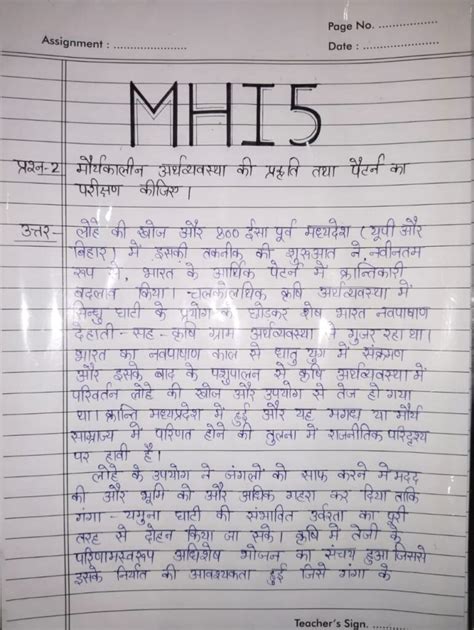 Page No. ..................
Assignment : ........................
Date : ........................
MHI5
प्रश्न-2 मौर्यकालीन अर्थव्यवस्था की प्रकृति तथा पैटर्न का
परीक्षण कीजिए ।
उत्तर - लोहे की खोज और 800 ईसा पूर्व मध्यदेश (यूपी और
बिहार) में इसकी तकनीक की शुरुआत ने नवीनतम
रूप से, भारत के आर्थिक पैटर्न में क्रान्तिकारी
बदलाव किया । कृषि अर्थव्यवस्था में
सिन्धु घाटी के प्रयोग को छोडकर शेष भारत नवपाषाण
देहाती - सह - कृषि ग्राम अर्थव्यवस्था से गुजर रहा था।
भारत का नवपाषाण काल से धातु युग में संक्रमण
और इसके बाद के पशुपालन से कृषि अर्थव्यवस्था में
परिवर्तन लोहे की खोज और उपयोग से तेज हो गया
था। क्रान्ति मध्यप्रदेश में हुई और यह मगध या मौर्य
साम्राज्य में परिणत होने की तुलना में राजनीतिक परिदृश्य
पर हावी है।
लोहे के उपयोग ने जंगलों को साफ करने में मदद
की और भूमि को और अधिक गहरा कर दिया ताकि
गंगा - यमुना घाटी की संभावित उर्वरता का पूरी
तरह से दोहन किया जा सके। कृषि में तेजी के
परिणामस्वरूप अधिशेष भोजन का संचय हुआ जिससे
इसके निर्यात की आवश्यकता हुई जिसे गंगा के
Teacher's Sign. ..................